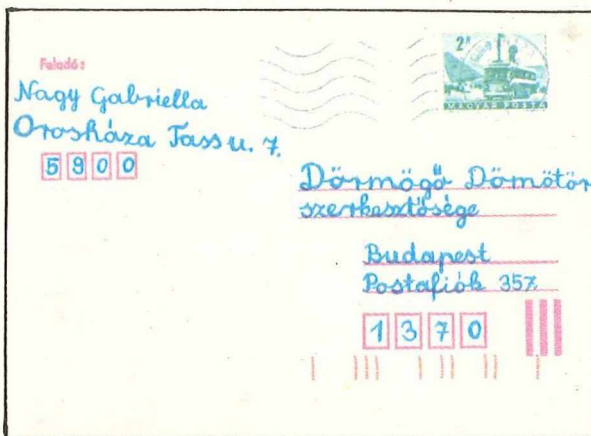 Feladó:
Nagy Gabriella
Orosháza Tass u. 7.
5900
2 Ft
MAGYAR POSTA
Dörmögő Dömötör
szerkesztősége
Budapest
Postafiók 357
1370